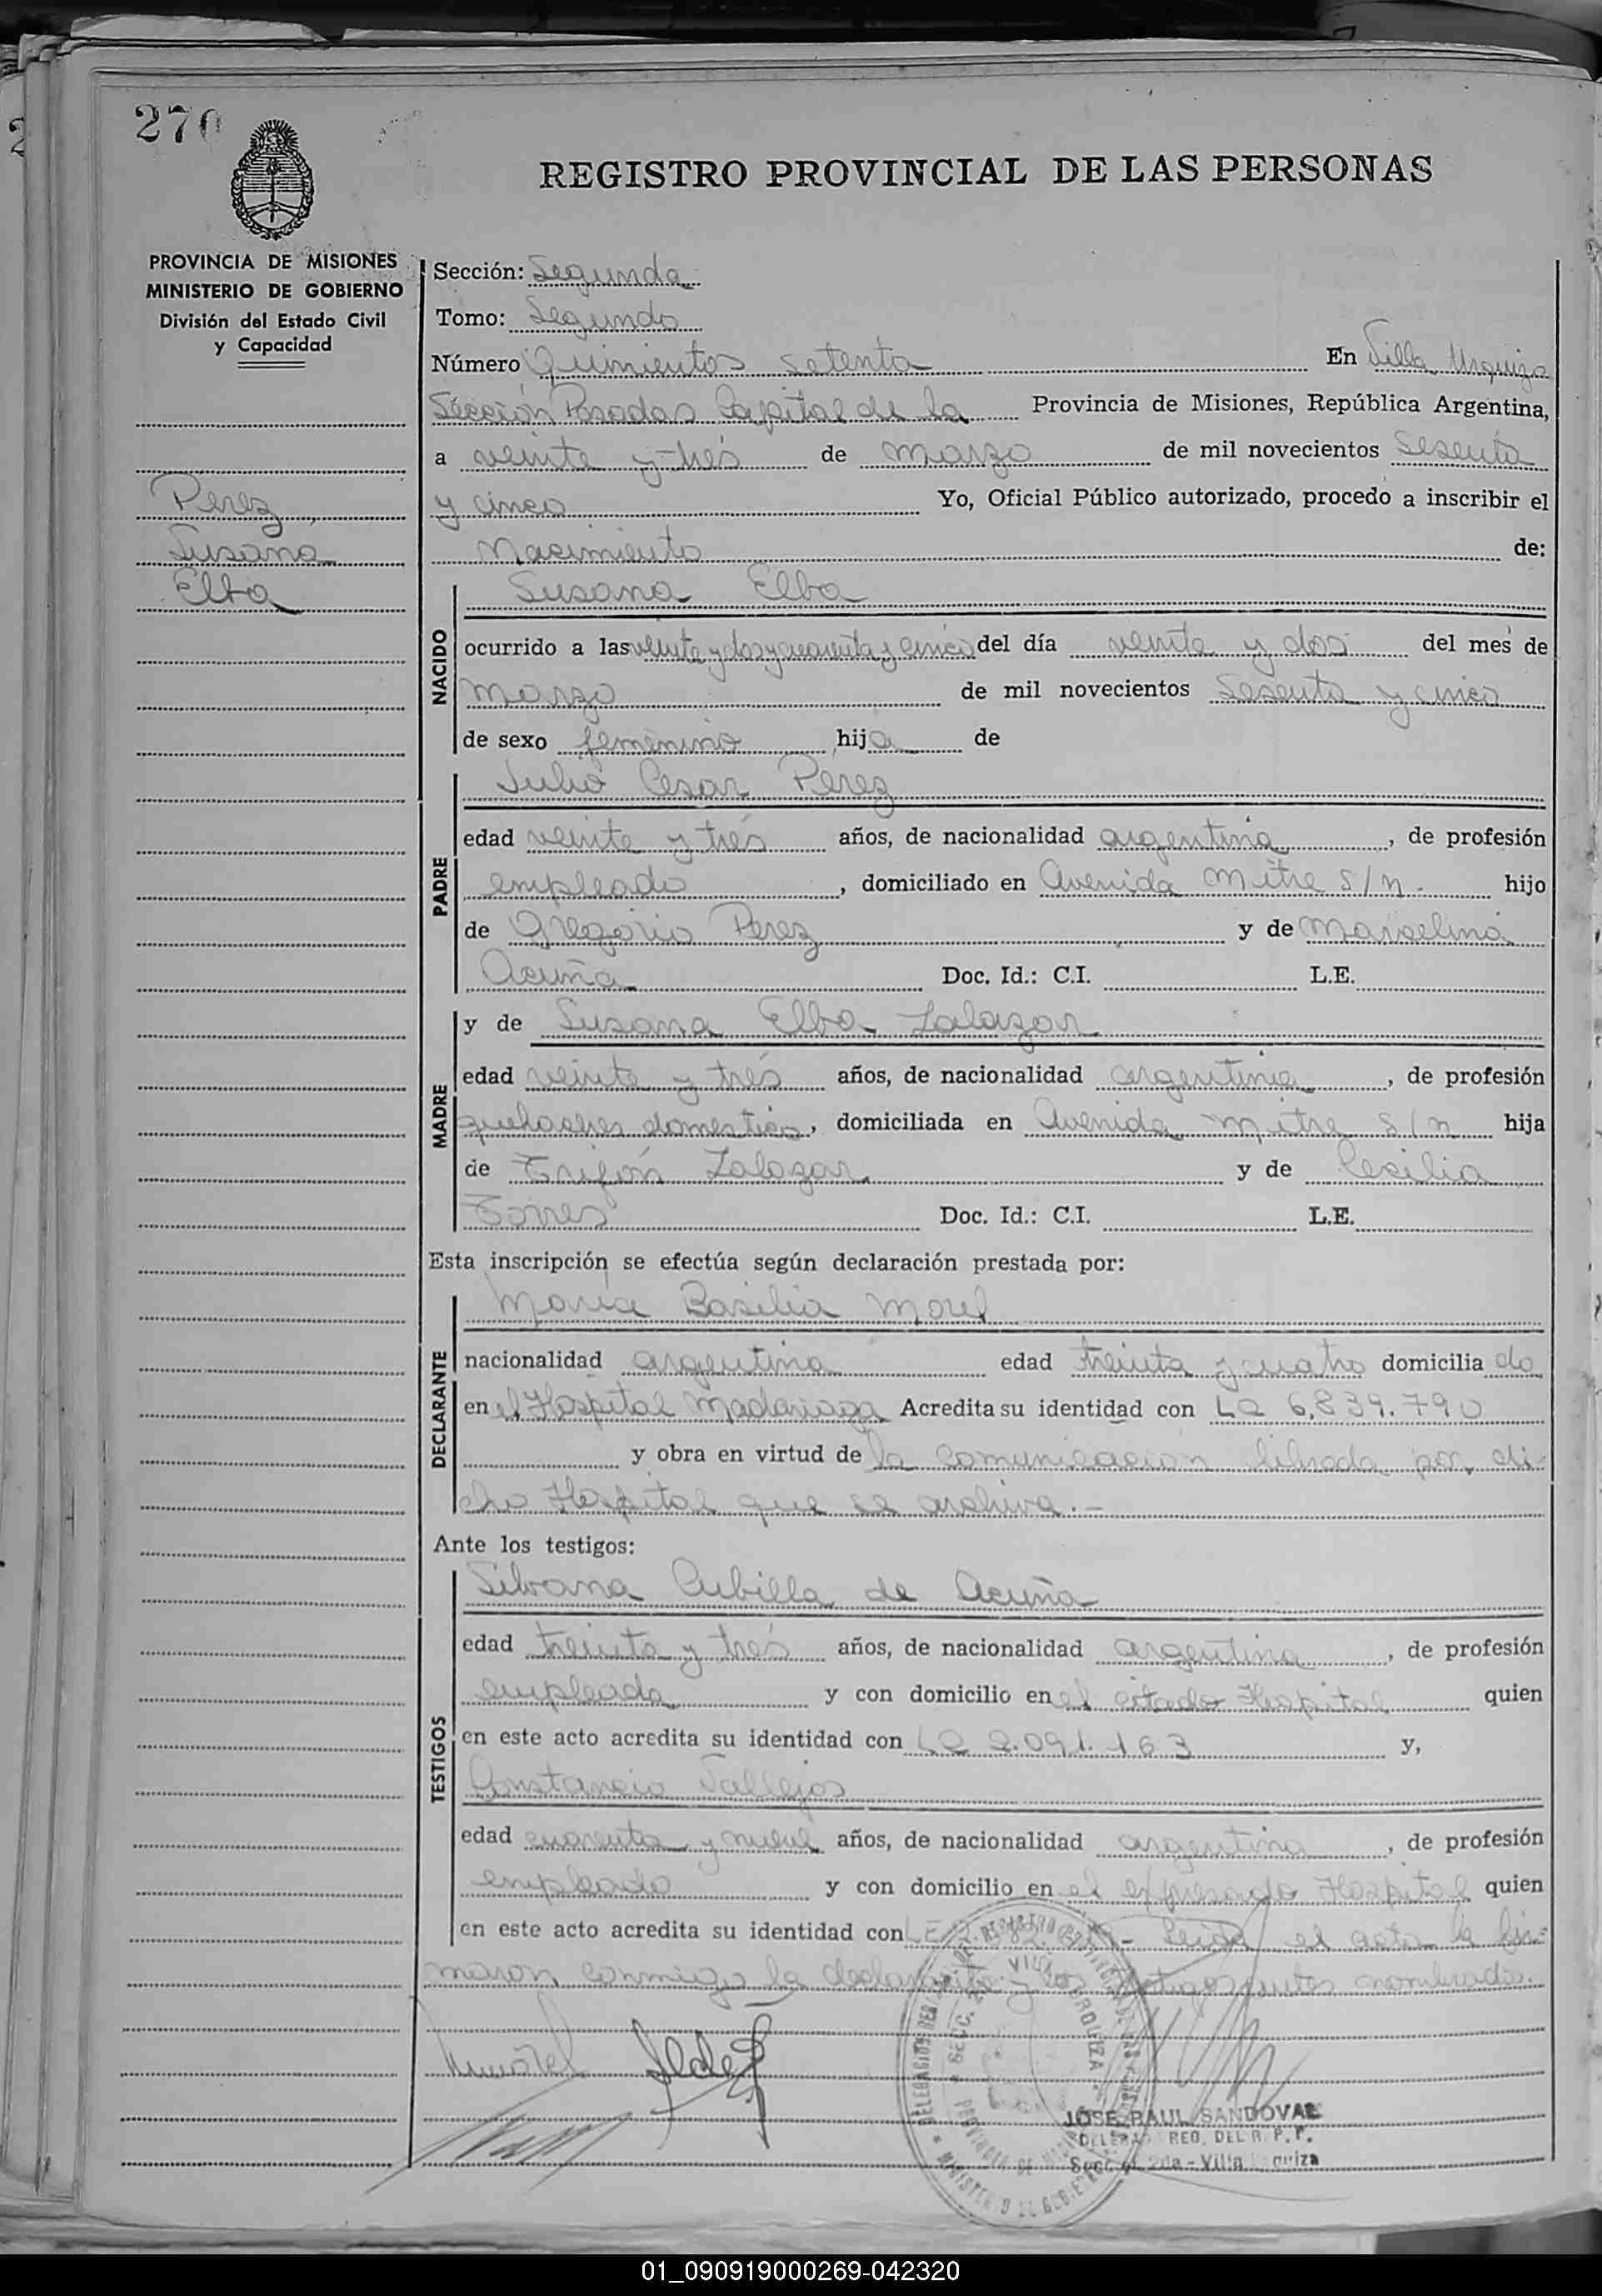 270
REGISTRO PROVINCIAL DE LAS PERSONAS
PROVINCIA DE MISIONES
MINISTERIO DE GOBIERNO
División del Estado Civil
y Capacidad
Perez
Susana
Elba
Sección: Segunda
Tomo: Segundo
Número Quinientos setenta En Villa Urquiza
Sección Posadas Capital de la Provincia de Misiones, República Argentina,
a veinte y tres de marzo de mil novecientos sesenta
y cinco Yo, Oficial Público autorizado, procedo a inscribir el
Nacimiento de:
NACIDO
Susana Elba
ocurrido a las veinte y dos y cuarenta y cinco del día veinte y dos del mes de
marzo de mil novecientos sesenta y cinco
de sexo femenino hija de
PADRE
Julio Cesar Pérez
edad veinte y tres años, de nacionalidad argentina, de profesión
empleado, domiciliado en Avenida Mitre s/n. hijo
de Gregorio Perez y de Marcelina
Acuña Doc. Id.: C.I. L.E.
MADRE
y de Susana Elba Zalazar
edad veinte y tres años, de nacionalidad argentina, de profesión
quehaceres domesticos, domiciliada en Avenida Mitre s/n hija
de Trifón Zalazar y de Cecilia
Torres Doc. Id.: C.I. L.E.
Esta inscripción se efectúa según declaración prestada por:
DECLARANTE
María Basilia Morel
nacionalidad argentina edad treinta y cuatro domicilia do
en el Hospital Madariaga Acredita su identidad con LC 6.839.790
y obra en virtud de la comunicación librada por di-
cho Hospital que se archiva.-
Ante los testigos:
TESTIGOS
Silvana Cubilla de Acuña
edad treinta y tres años, de nacionalidad argentina, de profesión
empleada y con domicilio en el citado Hospital quien
en este acto acredita su identidad con LC 2.091.163 y,
Constancio Vallejos
edad cuarenta y nueve años, de nacionalidad argentina, de profesión
empleado y con domicilio en el expresado Hospital quien
en este acto acredita su identidad con LE Leida el acta la fir-
maron conmigo la declarante y los testigos antes nombrados.
JOSE RAUL SANDOVAL
REG. DEL R. P. P.
2da - Villa
01_090919000269-042320